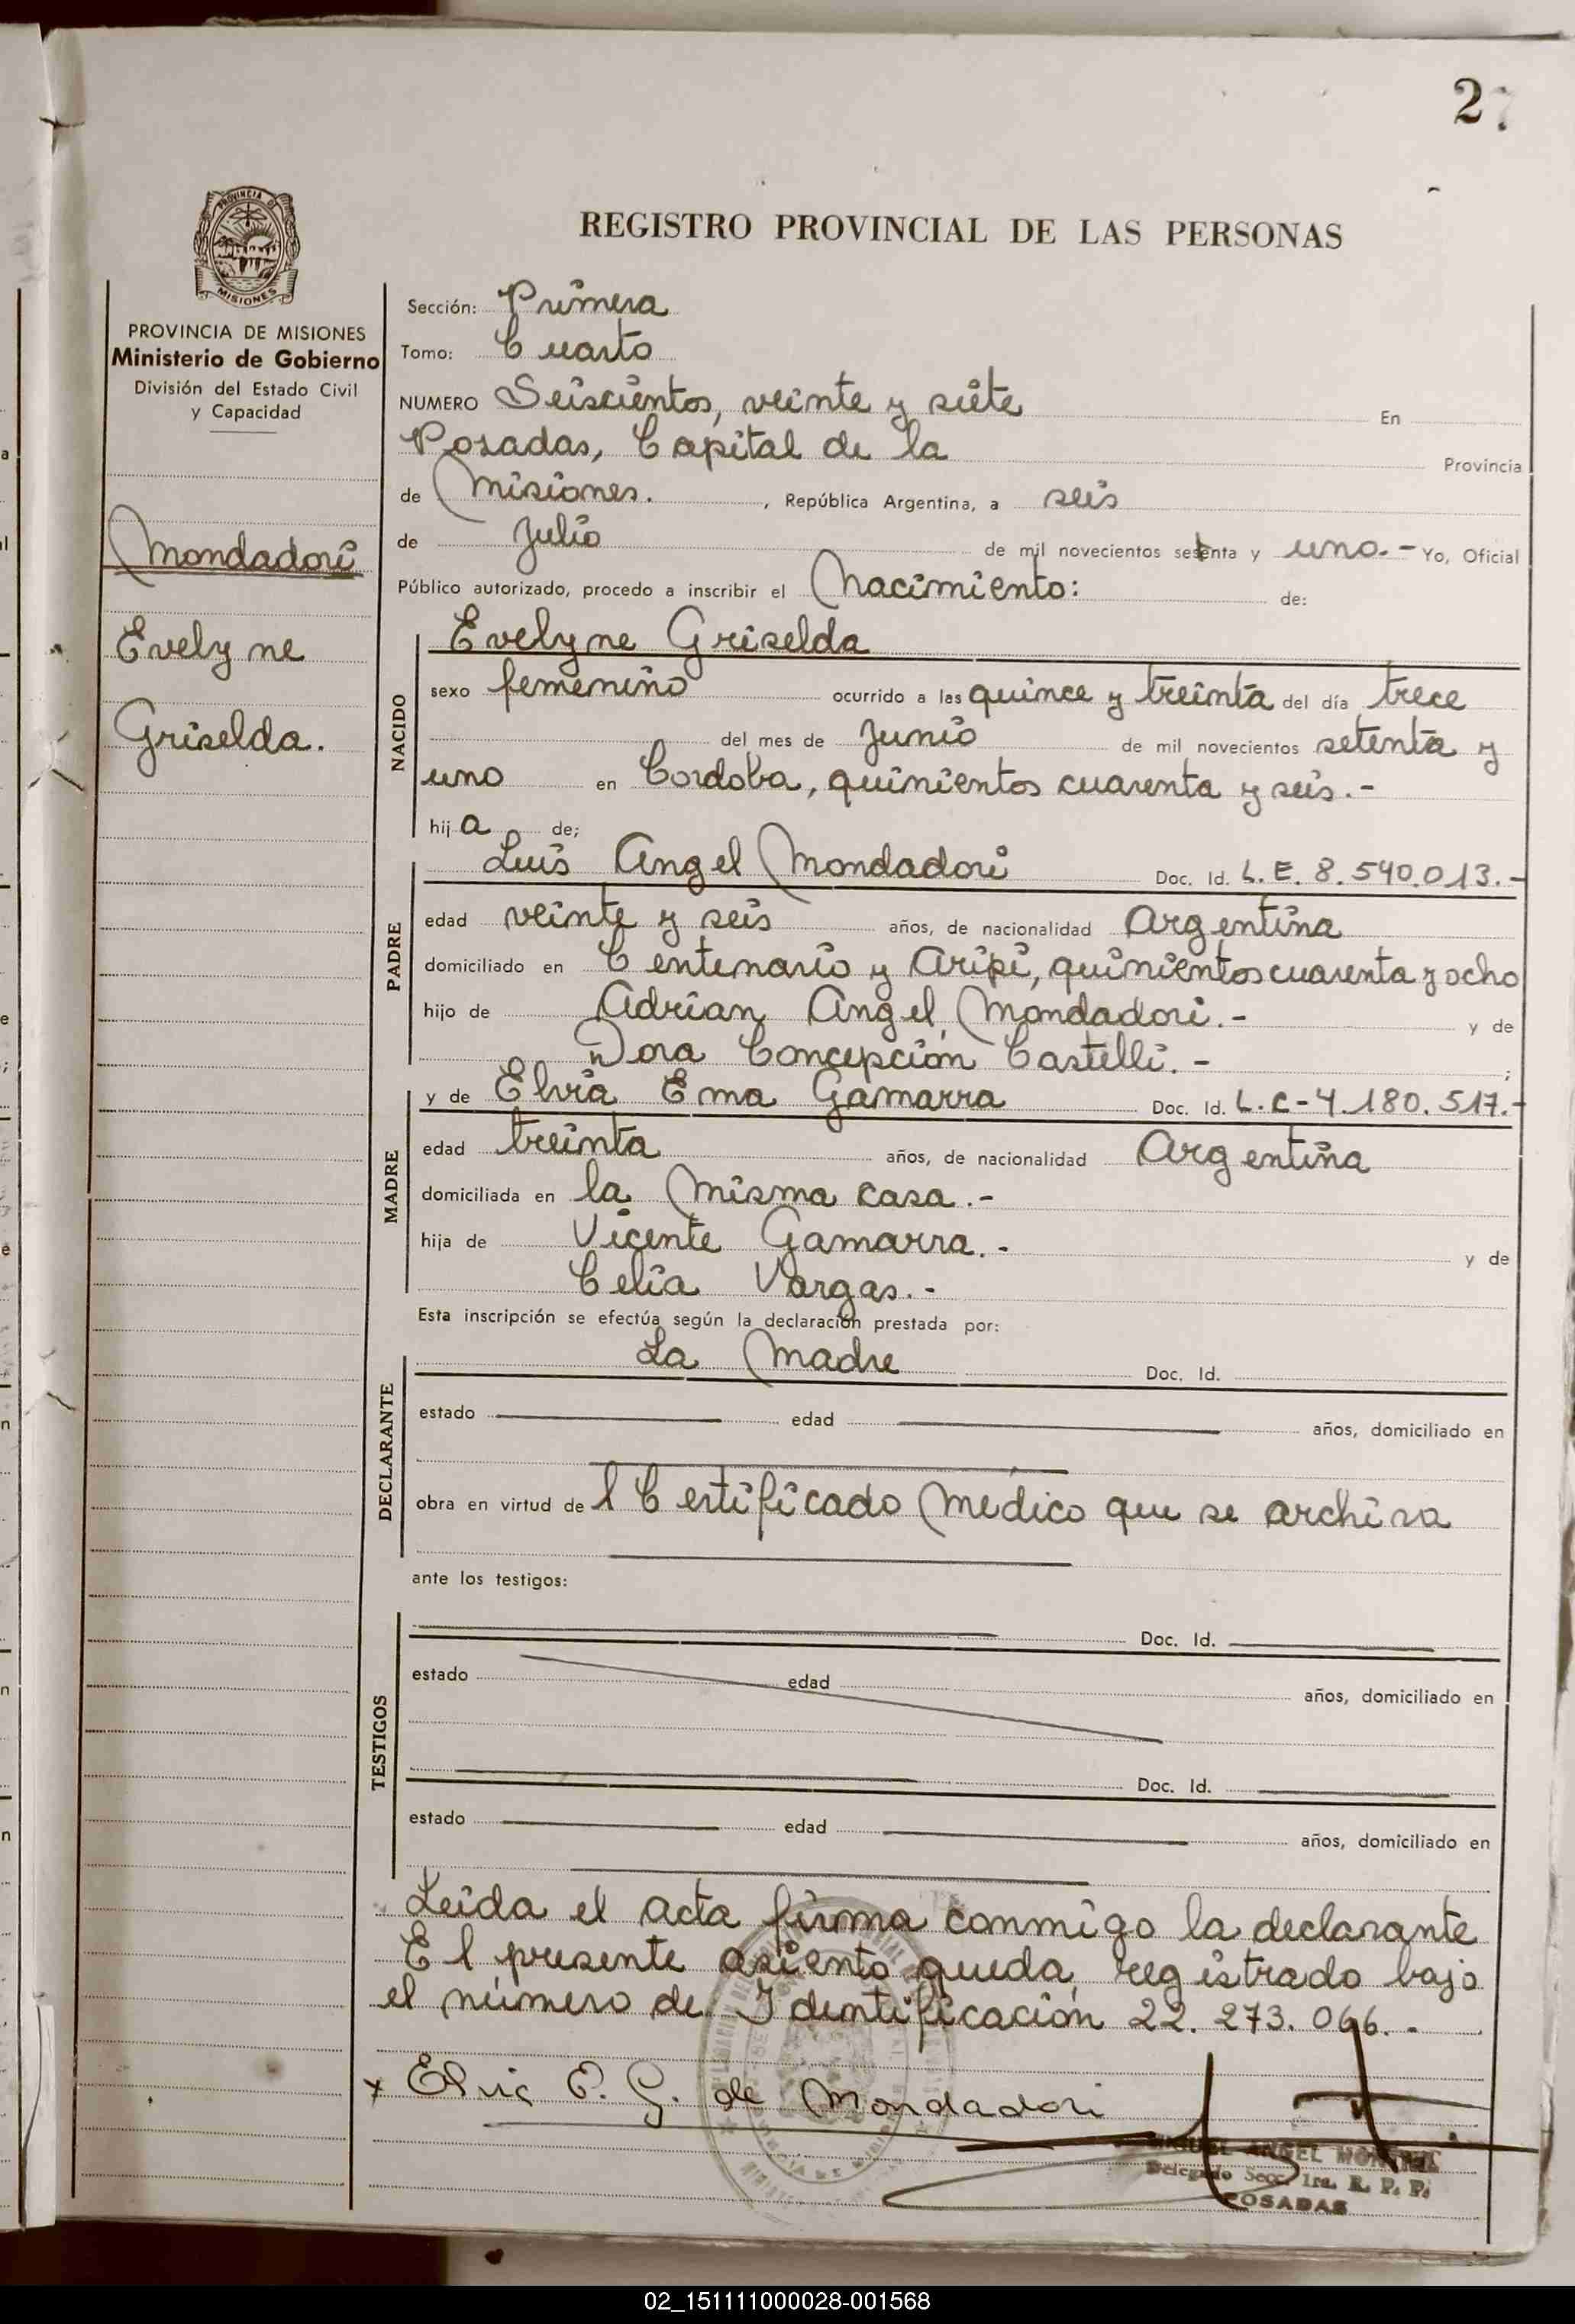 27
REGISTRO PROVINCIAL DE LAS PERSONAS
PROVINCIA DE
MISIONES
PROVINCIA DE MISIONES
Ministerio de Gobierno
División del Estado Civil
y Capacidad
Mondadori
Evelyne
Griselda.
Sección: Primera
Tomo: Cuarto
NUMERO Seiscientos, veinte y siete En
Posadas, Capital de la Provincia
de Misiones. , República Argentina, a seis
de Julio de mil novecientos setenta y uno.- Yo, Oficial
Público autorizado, procedo a inscribir el Nacimiento: de:
NACIDO
Evelyne Griselda
sexo femenino ocurrido a las quince y treinta del día trece
del mes de Junio de mil novecientos setenta y
uno en Cordoba, quinientos cuarenta y seis.-
hij a de;
PADRE
Luis Angel Mondadori Doc. Id. L.E. 8.540.013.-
edad veinte y seis años, de nacionalidad Argentina
domiciliado en Centenario y Aripi, quinientos cuarenta y ocho
hijo de Adrian Angel Mondadori.- y de
Dora Concepción Castelli.- ;
MADRE
y de Elvia Ema Gamarra Doc. Id. L.C-4.180.517.-
edad treinta años, de nacionalidad Argentina
domiciliada en la misma casa.-
hija de Vicente Gamarra.- y de
Celia Vargas.-
Esta inscripción se efectúa según la declaración prestada por:
DECLARANTE
La Madre Doc. Id.
estado edad años, domiciliado en
obra en virtud de l Certificado médico que se archiva
ante los testigos:
TESTIGOS
Doc. Id.
estado edad años, domiciliado en
Doc. Id.
estado edad años, domiciliado en
Leida el acta firma conmigo la declarante
El presente asiento queda registrado bajo
el número de Identificación 22.273.066.-
x Elvia E. G. de Mondadori
MIGUEL ANGEL
Delegado Secc. 1ra. R. P. P.
POSADAS
02_151111000028-001568